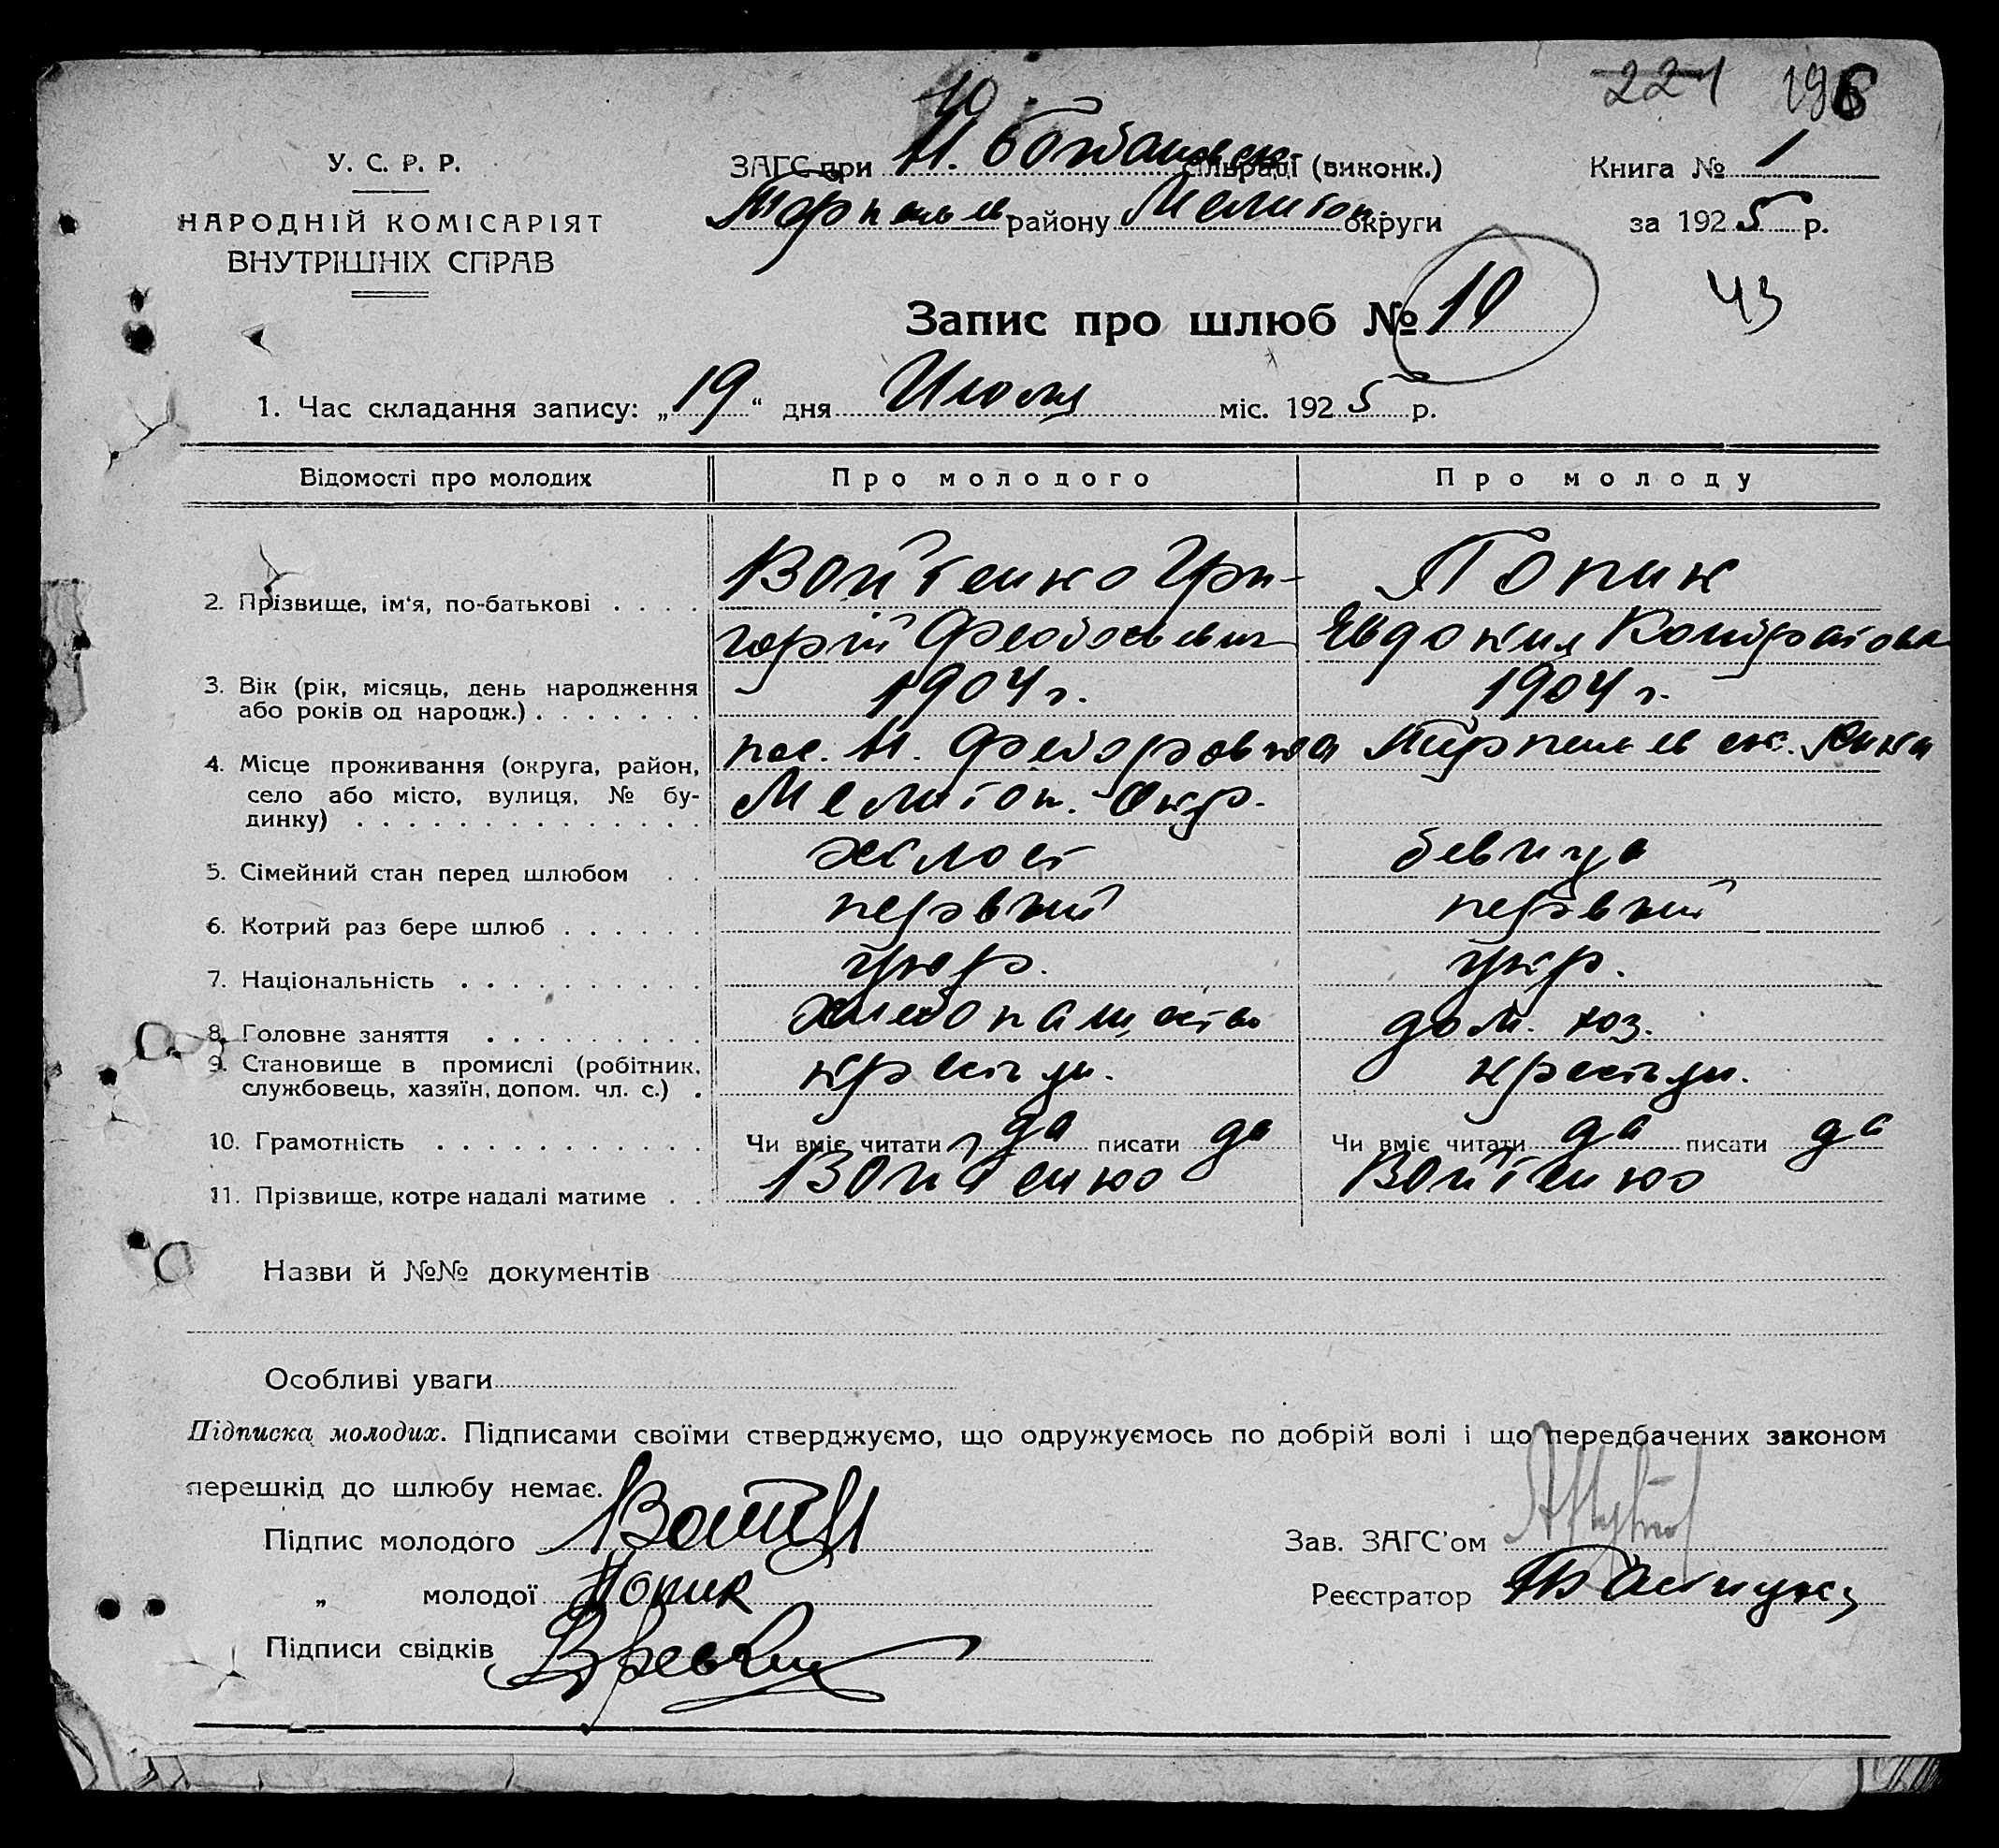 221 196
10
У. С. Р. Р.
ЗАГС при Н. Богдановск сільраді (виконк.)
Книга № 1
НАРОДНІЙ КОМІСАРІЯТ
ВНУТРІШНІХ СПРАВ
району Мелитоп. округи
за 1925 р.
Запис про шлюб № 10
43
1. Час складання запису: „19“ дня Июля міс. 1925 р.
Відомості про молодих Про молодого Про молоду
2. Прізвище, ім‘я, по-батькові . . . . Войтенко Гри- Попик
горій Феодосьевич Евдокия Кондратовна
3. Вік (рік, місяць, день народження
або років од народж.) . . . . . . . 1904 г. 1904 г.
4. Місце проживання (округа, район,
село або місто, вулиця, № бу-
динку) . . . . . . . . . . . . . .
пос. Н. Федоровка Терпеньевск.
Мелитоп. Окр.
5. Сімейний стан перед шлюбом . . холост девица
6. Котрий раз бере шлюб . . . . . . первый первый
7. Національність . . . . . . . . . . укр. укр.
8. Головне заняття . . . . . . . . . хлебопашество дом. хоз.
9. Становище в промислі (робітник,
службовець, хазяїн, допом. чл. с.) . крестьян. крестьян.
10. Грамотність . . . . . . . . . . . Чи вміє читати да писати да Чи вміє читати да писати да
11. Прізвище, котре надалі матиме . . Войтенко Войтенко
Назви й №№ документів
Особливі уваги
Підписка молодих. Підписами своїми стверджуємо, що одружуємось по добрій волі і що передбачених законом
перешкід до шлюбу немає.
Підпис молодого
Зав. ЗАГС’ом
„ молодої Попик
Реєстратор
Підписи свідків